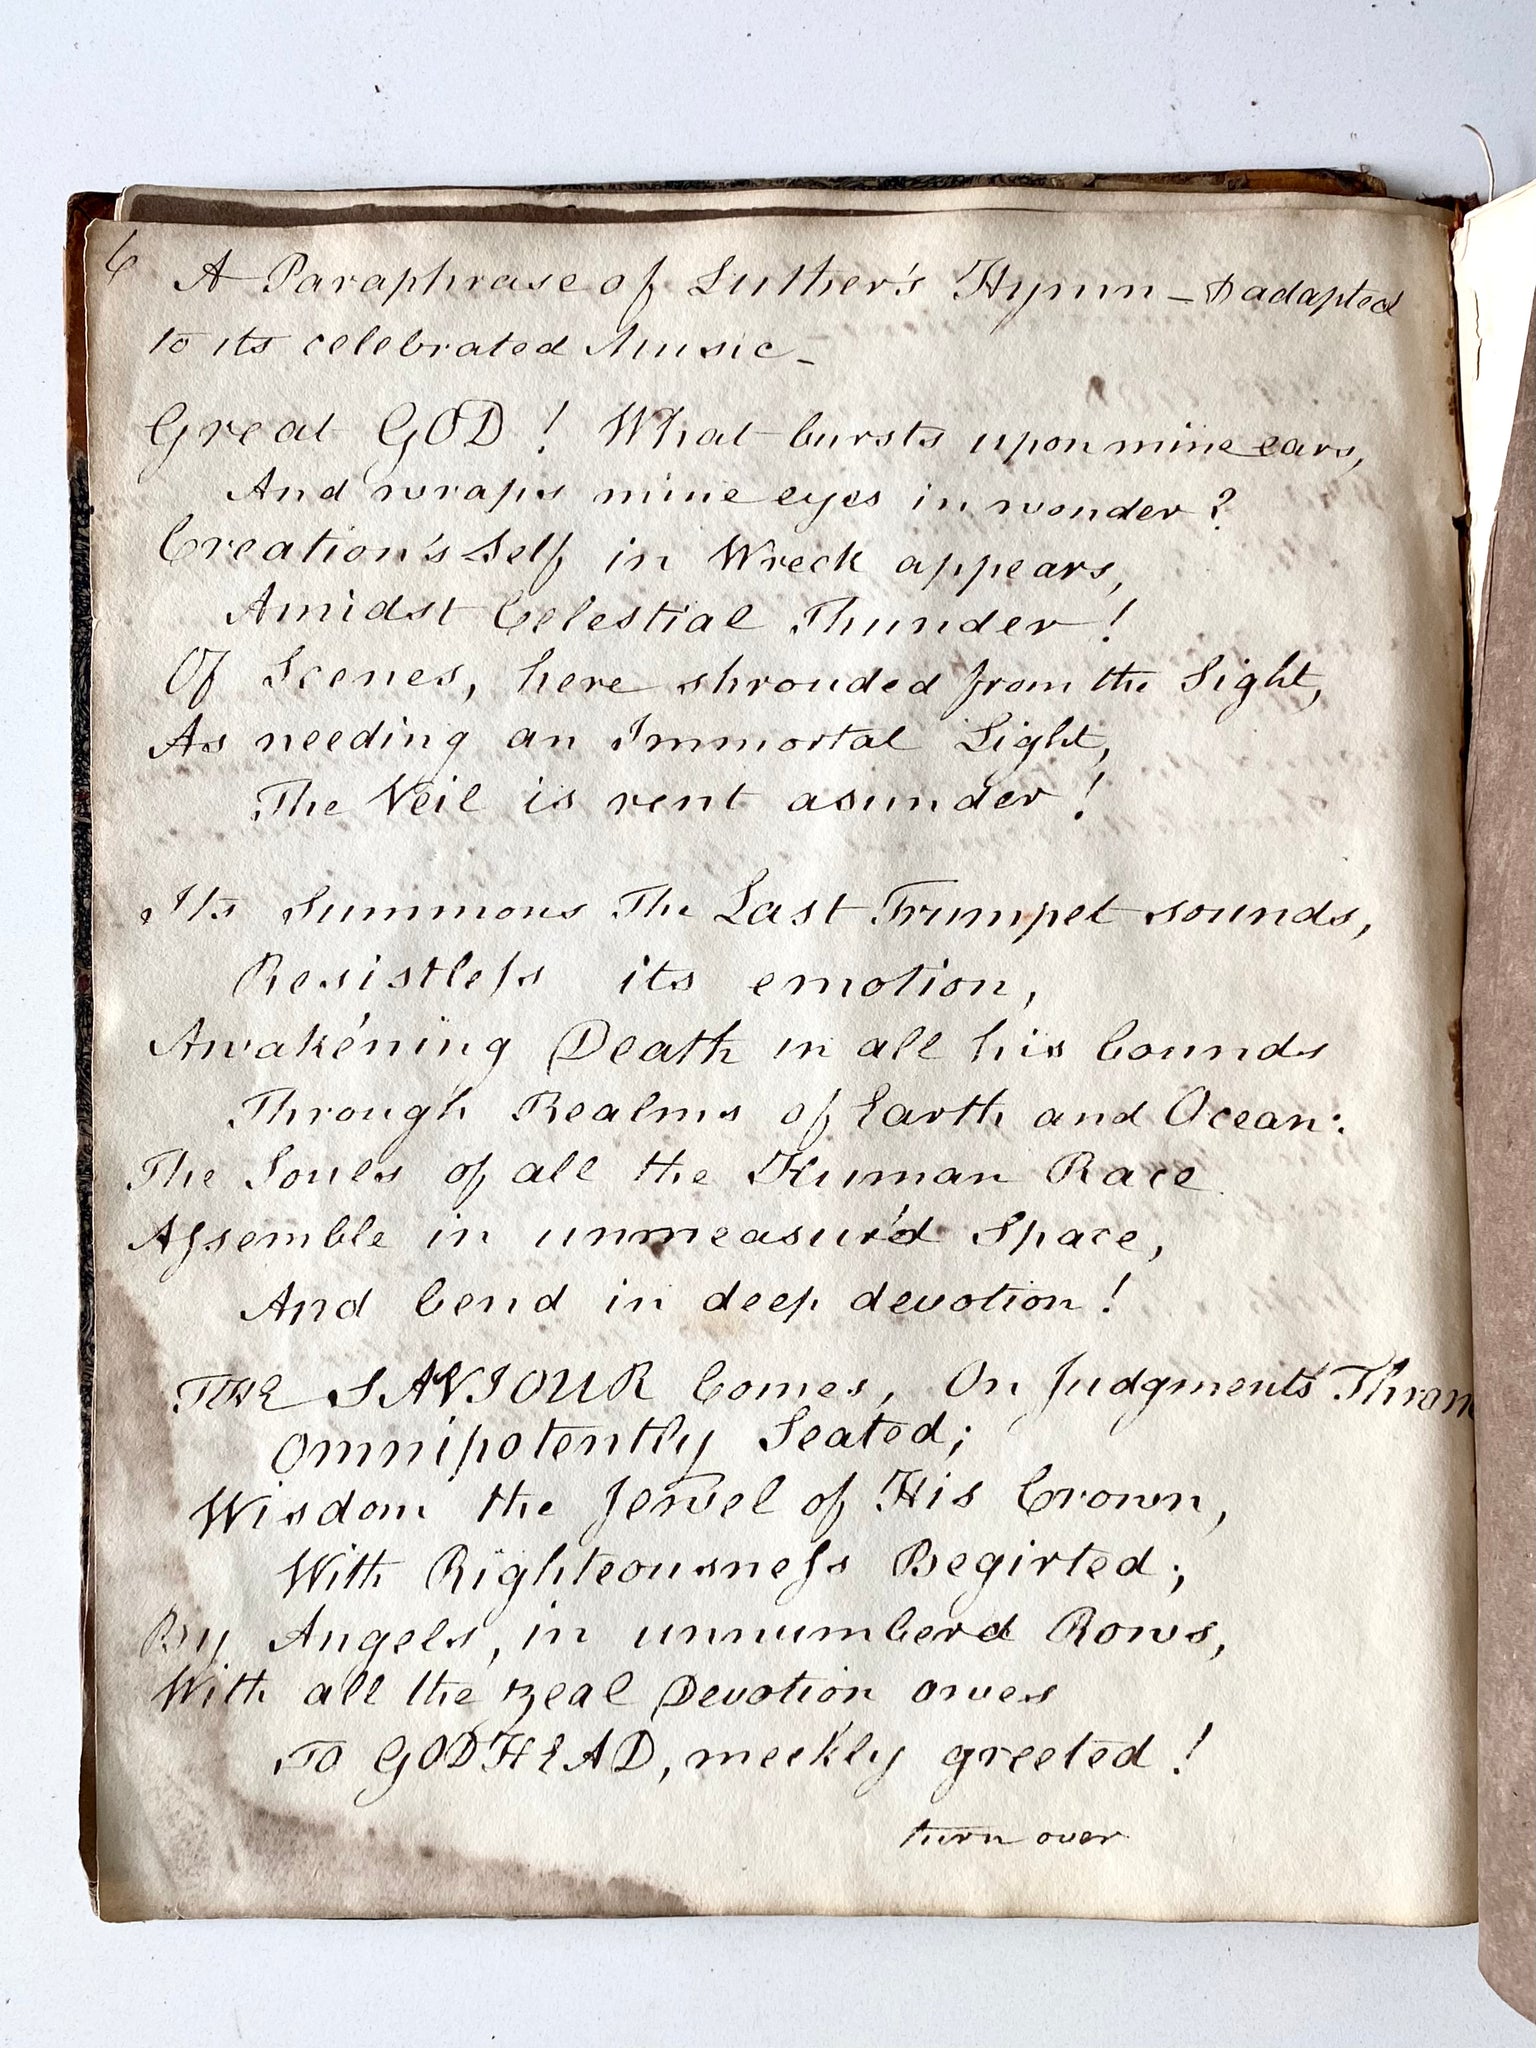 6 A Paraphrase of Luther's Hymn - & adapted
to its celebrated Music -
Great GOD! What bursts upon mine ears,
And wraps mine eyes in wonder?
Creation's Self in Wreck appears,
Amidst Celestial Thunder!
Of Scenes, here shrouded from the Sight,
As needing an Immortal Light,
The Veil is rent asunder!
Its Summons The Last Trumpet sounds,
Resistleſs its emotion,
Awak'ning Death in all his bounds
Through Realms of Earth and Ocean:
The Souls of all the Human Race
Aſsemble in unmeasur'd Space,
And bend in deep devotion!
THE SAVIOUR Comes, On Judgment's
Omnipotently Seated;
Wisdom the Jewel of His Crown,
With Righteousneſs Begirted;
By Angels, in unnumberd Rows,
With all the zeal Devotion owes
To GODHEAD, meekly greeted!
turn over